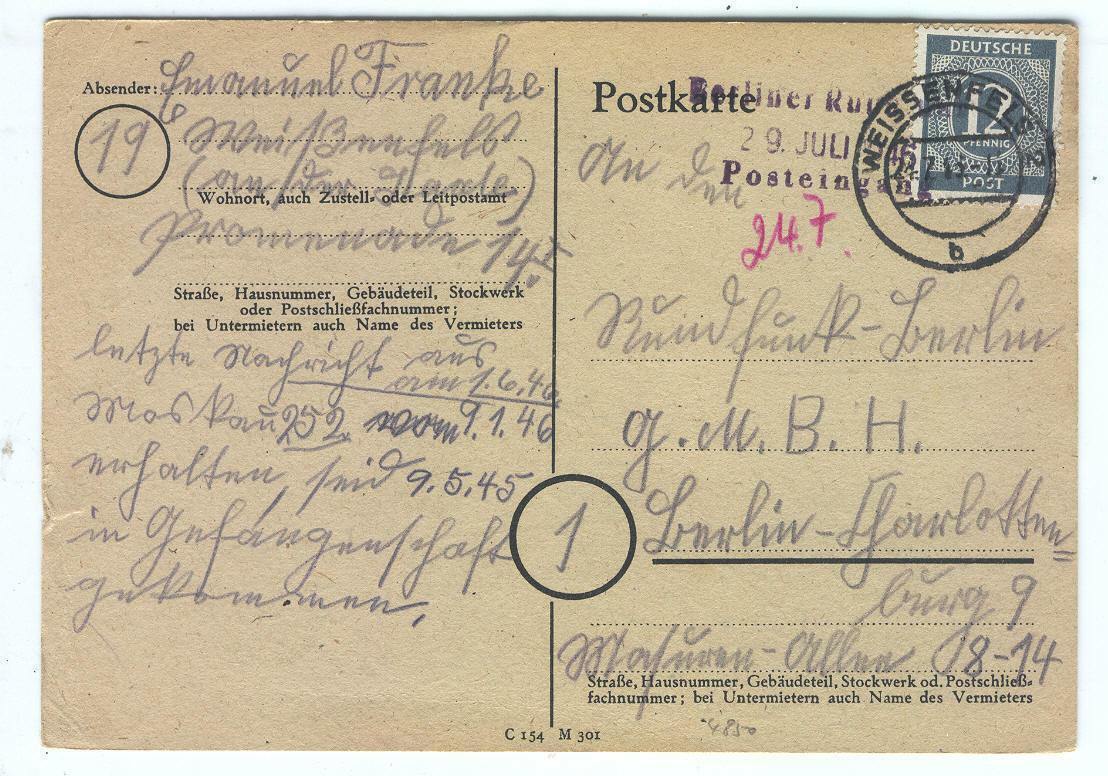 Absender: Emanuel Franke
19 Weißenfels
(an der Saale)
Wohnort, auch Zustell- oder Leitpostamt
Promenade 14 I.
Straße, Hausnummer, Gebäudeteil, Stockwerk
oder Postschließfachnummer;
bei Untermietern auch Name des Vermieters
letzte Nachricht aus
am 1.6.46.
Moskau 252. vom 9.1.46
erhalten, seid 9.5.45
in Gefangenschaft
gekommen.
Postkarte
Berliner
29. JULI
Posteingang
24.7.
DEUTSCHE
12
PFENNIG
POST
WEISSENFELS
b
An den
Rundfunk-Berlin
G.M.B.H.
1 Berlin-Charlotten=
burg 9
Masuren-Allee 8-14
Straße, Hausnummer, Gebäudeteil, Stockwerk od. Postschließ-
fachnummer; bei Untermietern auch Name des Vermieters
C 154 M 301
4850